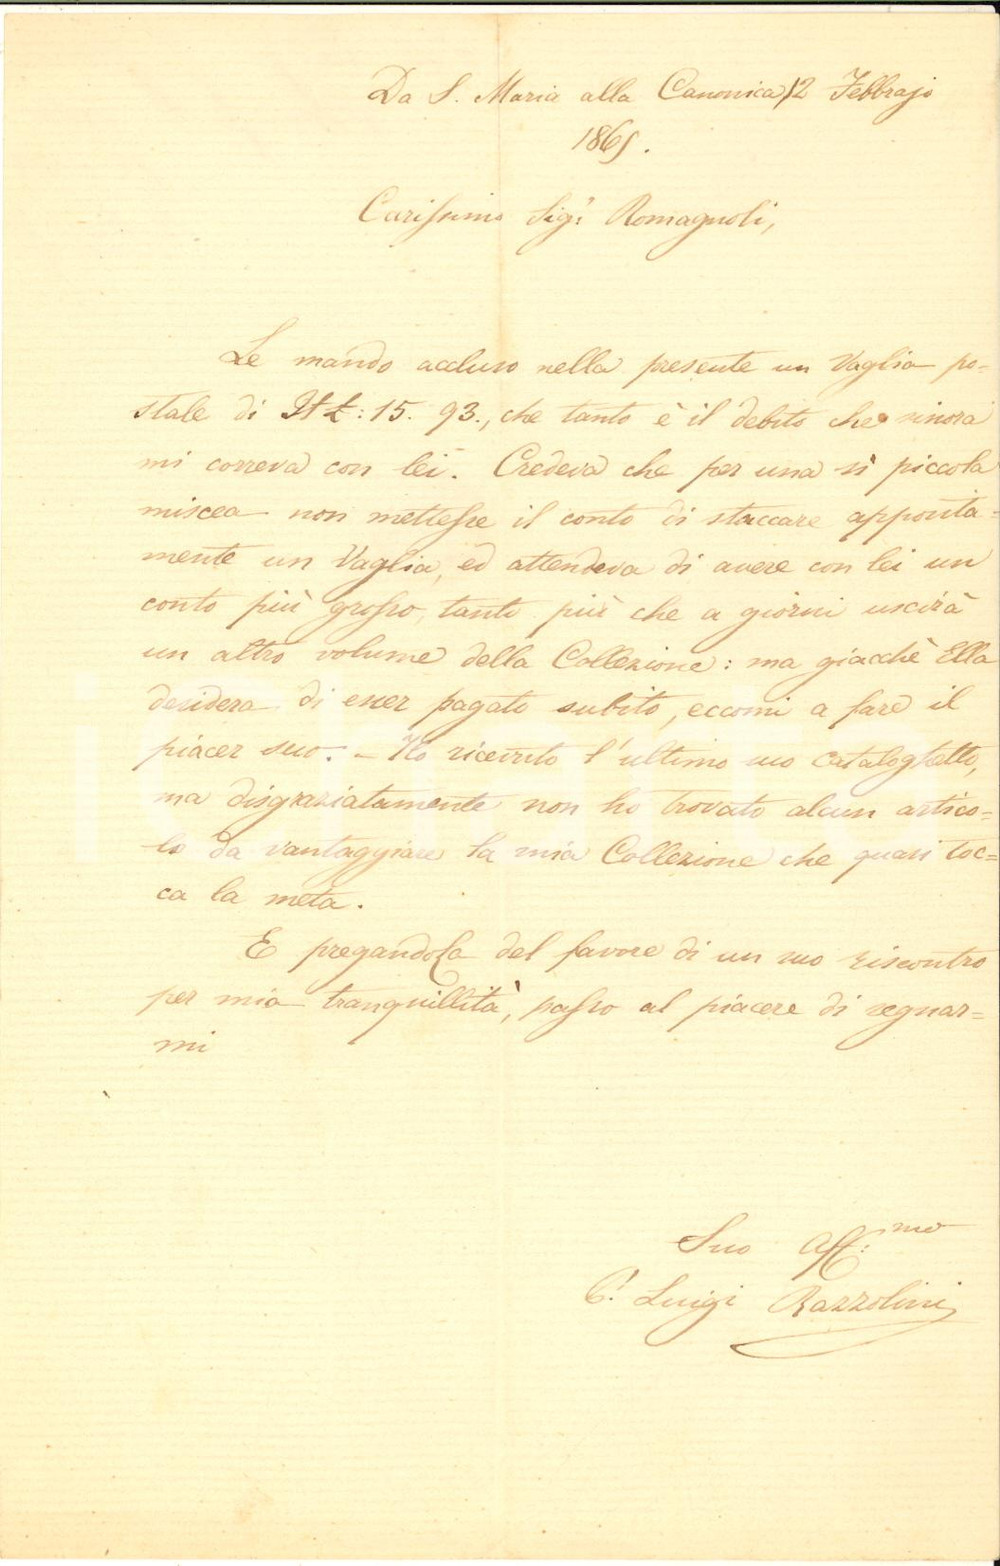 Da S. Maria alla Canonica 12 Febbrajo
1865.
Carissimo Sig.r Romagnoli,
Le mando accluso nella presente un Vaglia po=
stale di It £: 15. 93., che tanto è il debito che sinora
mi correva con lei. Credeva che per una sì piccola
miscea non mettesse il conto di staccare apposita=
mente un Vaglia, ed attendeva di avere con lei un
conto più grosso, tanto più che a giorni uscirà
un altro volume della Collezione: ma giacchè Ella
desidera di esser pagato subito, eccomi a fare il
piacer suo. – Ho ricevuto l'ultimo suo cataloghetto,
ma disgraziatamente non ho trovato alcun artico=
lo da vantaggiare la mia Collezione che quasi toc=
ca la meta.
E pregandola del favore di un suo riscontro
per mia tranquillità, passo al piacere di segnar=
mi
Suo Aff:mo
P. Luigi Razzolini